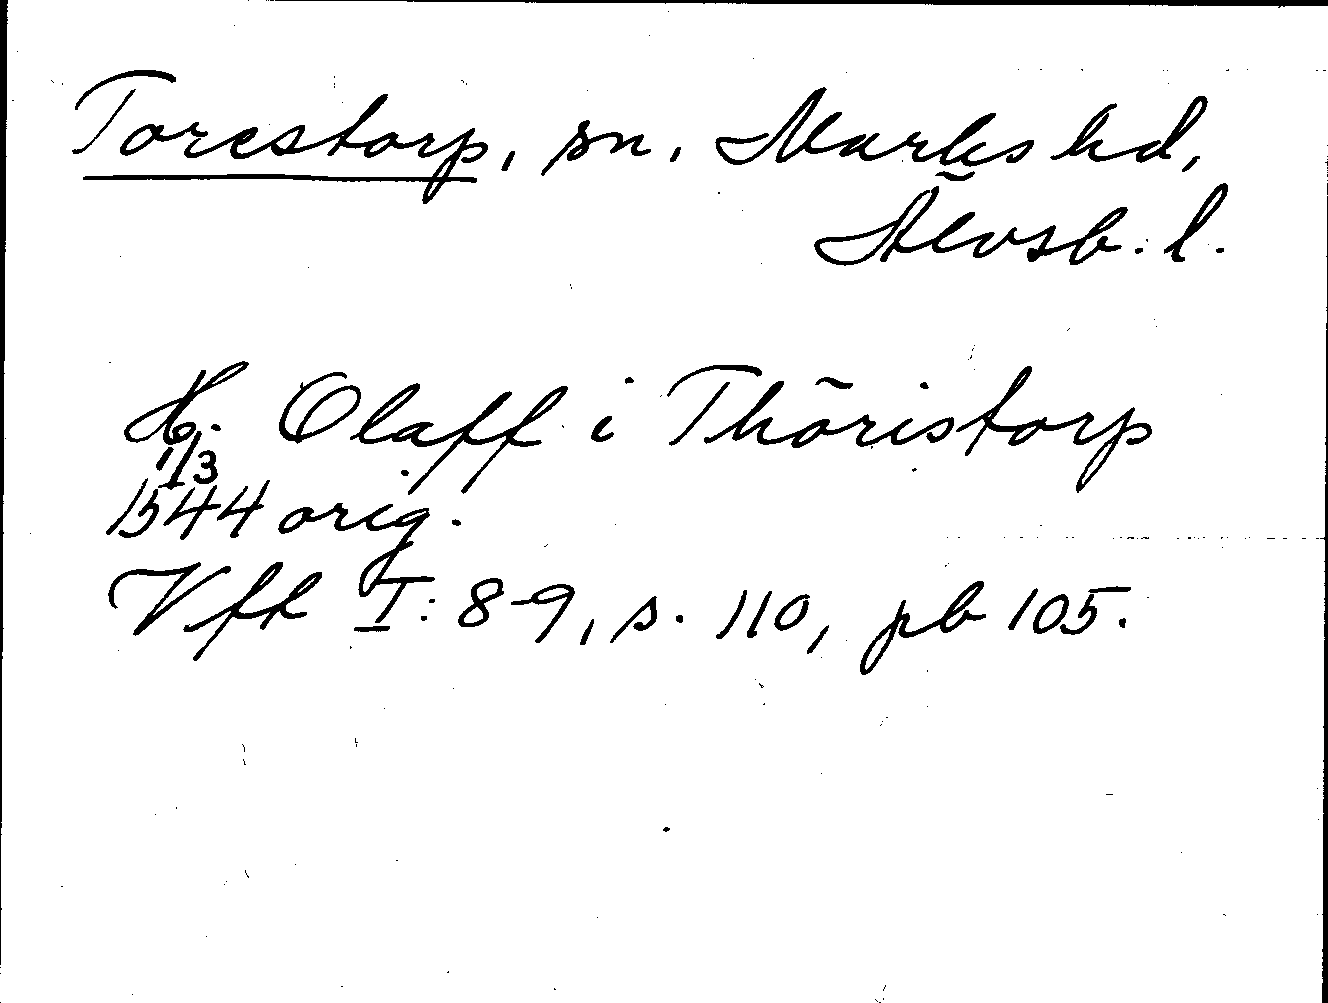 Torestorp, sn. Marks hd,
Älvsb. l.
H. Olaff i Thöristorp
1/3
1544 orig.
Vfft I: 8-9, s. 110, pb 105.